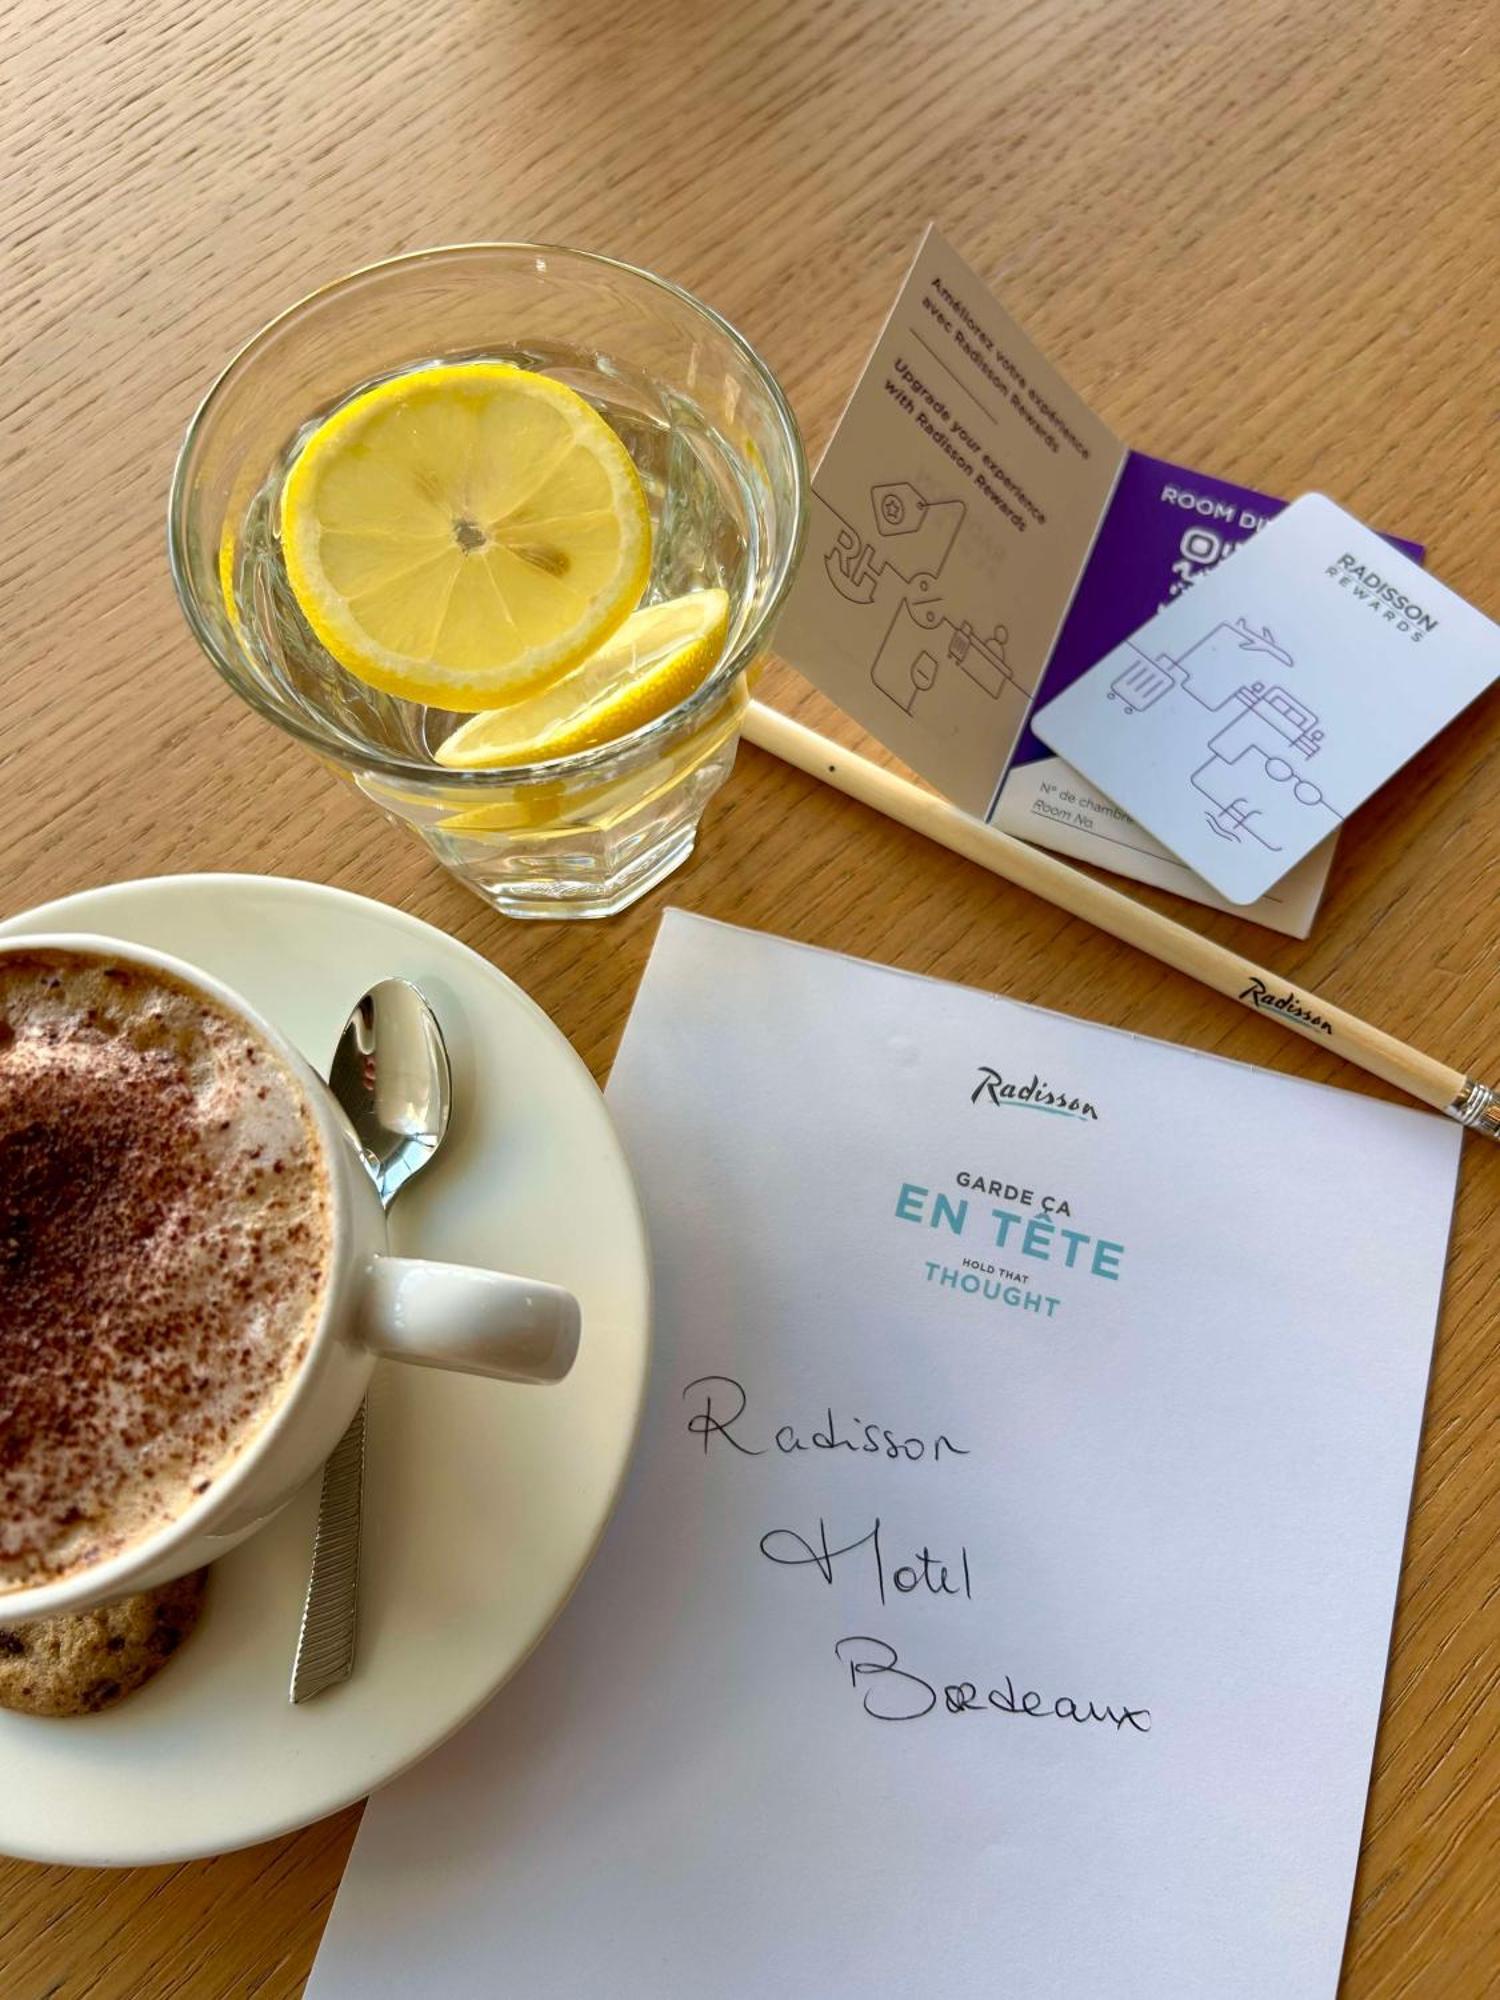 Améliorez votre expérience
avec Radisson Rewards
Upgrade your experience
with Radisson Rewards
RH
ROOM
RADISSON
REWARDS
N° de chambre
Room No.
Radisson
Radisson
GARDE ÇA
EN TÊTE
HOLD THAT
THOUGHT
Radisson
Hotel
Bordeaux